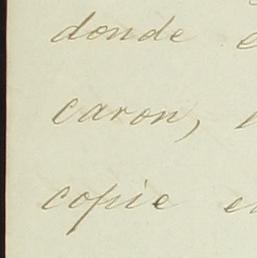 donde e
caron,
copie en